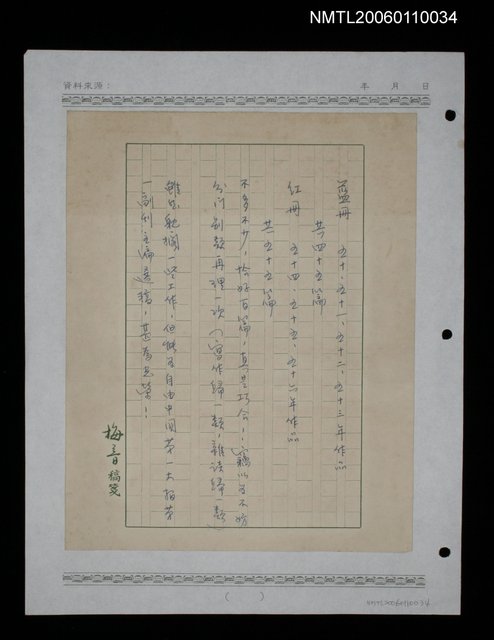 NMTL20060110034
資料來源：
年 月 日
藍冊 五十、五十一、五十二、五十三年作品
共四十五篇
紅冊 五十四、五十五、五十六年作品
共五十五篇
不多不少，恰好百篇，真是巧合！竊以為不妨
分門別類再理一次（寫作歸一類，雜談歸一類）
雖然耽擱一些工作，但能為自由中國第一大報第
一副刊主編選稿，甚為光榮！
梅音稿箋
（ ）
NMTL20060110034